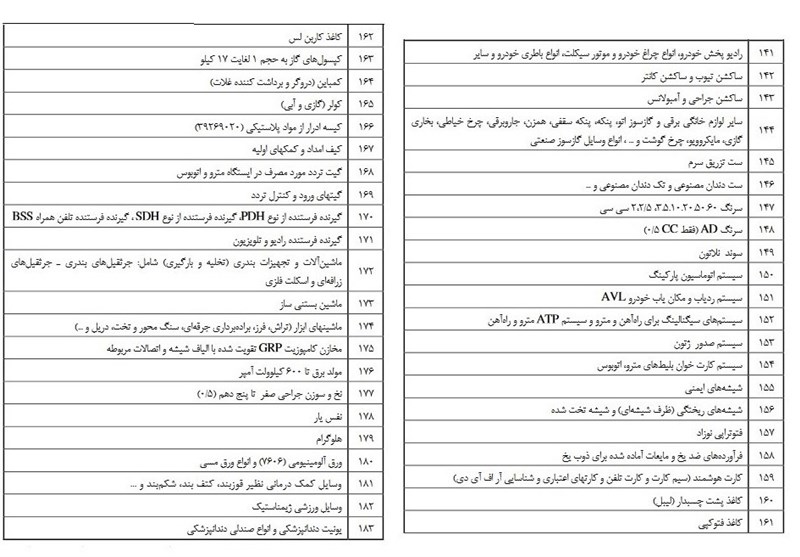 ۱۴۱ رادیو پخش خودرو، انواع چراغ خودرو و موتور سیکلت، انواع باطری خودرو و سایر
۱۴۲ ساکشن تیوب و ساکشن کانتر
۱۴۳ ساکشن جراحی و آمبولانس
۱۴۴ سایر لوازم خانگی برقی و گازسوز اتو، پنکه، پنکه سقفی، همزن، جاروبرقی، چرخ خیاطی، بخاری
گازی، مایکروویو، چرخ گوشت و ... ، انواع وسایل گازسوز صنعتی
۱۴۵ ست تزریق سرم
۱۴۶ ست دندان مصنوعی و تک دندان مصنوعی و ...
۱۴۷ سرنگ ۲،۲/۵، ۳،۵،۱۰،۲۰،۵۰،۶۰ سی سی
۱۴۸ سرنگ AD (فقط ۰/۵ CC)
۱۴۹ سوند نلاتون
۱۵۰ سیستم اتوماسیون پارکینگ
۱۵۱ سیستم ردیاب و مکان یاب خودرو AVL
۱۵۲ سیستم‌های سیگنالینگ برای راه‌آهن و مترو و سیستم ATP مترو و راه‌آهن
۱۵۳ سیستم صدور ژتون
۱۵۴ سیستم کارت خوان بلیط‌های مترو، اتوبوس
۱۵۵ شیشه‌های ایمنی
۱۵۶ شیشه‌های ریختگی (ظرف شیشه‌ای) و شیشه تخت شده
۱۵۷ فتوتراپی نوزاد
۱۵۸ فرآورده‌های ضد یخ و مایعات آماده شده برای ذوب یخ
۱۵۹ کارت هوشمند (سیم کارت و کارت تلفن و کارتهای اعتباری و شناسایی آر اف آی دی)
۱۶۰ کاغذ پشت چسبدار (لیبل)
۱۶۱ کاغذ فتوکپی
۱۶۲ کاغذ کاربن لس
۱۶۳ کپسول‌های گاز به حجم ۱ لغایت ۱۷ کیلو
۱۶۴ کمباین (دروگر و برداشت کننده غلات)
۱۶۵ کولر (گازی و آبی)
۱۶۶ کیسه ادرار از مواد پلاستیکی (۳۹۲۶۹۰۲۰)
۱۶۷ کیف امداد و کمکهای اولیه
۱۶۸ گیت تردد مورد مصرف در ایستگاه مترو و اتوبوس
۱۶۹ گیتهای ورود و کنترل تردد
۱۷۰ گیرنده فرستنده از نوع PDH، گیرنده فرستنده از نوع SDH ، گیرنده فرستنده تلفن همراه BSS
۱۷۱ گیرنده فرستنده رادیو و تلویزیون
۱۷۲ ماشین‌آلات و تجهیزات بندری (تخلیه و بارگیری) شامل: جرثقیل‌های بندری ـ جرثقیل‌های
زرافه‌ای و اسکلت فلزی
۱۷۳ ماشین بستنی ساز
۱۷۴ ماشینهای ابزار (تراش، فرز، براده‌برداری جرقه‌ای، سنگ محور و تخت، دریل و ...)
۱۷۵ مخازن کامپوزیت GRP تقویت شده با الیاف شیشه و اتصالات مربوطه
۱۷۶ مولد برق تا ۶۰۰ کیلوولت آمپر
۱۷۷ نخ و سوزن جراحی صفر تا پنج دهم (۰/۵)
۱۷۸ نفس یار
۱۷۹ هلوگرام
۱۸۰ ورق آلومینیومی (۷۶۰۶) و انواع ورق مسی
۱۸۱ وسایل کمک درمانی نظیر قوزبند، کتف بند، شکم‌بند و ...
۱۸۲ وسایل ورزشی ژیمناستیک
۱۸۳ یونیت دندانپزشکی و انواع صندلی دندانپزشکی